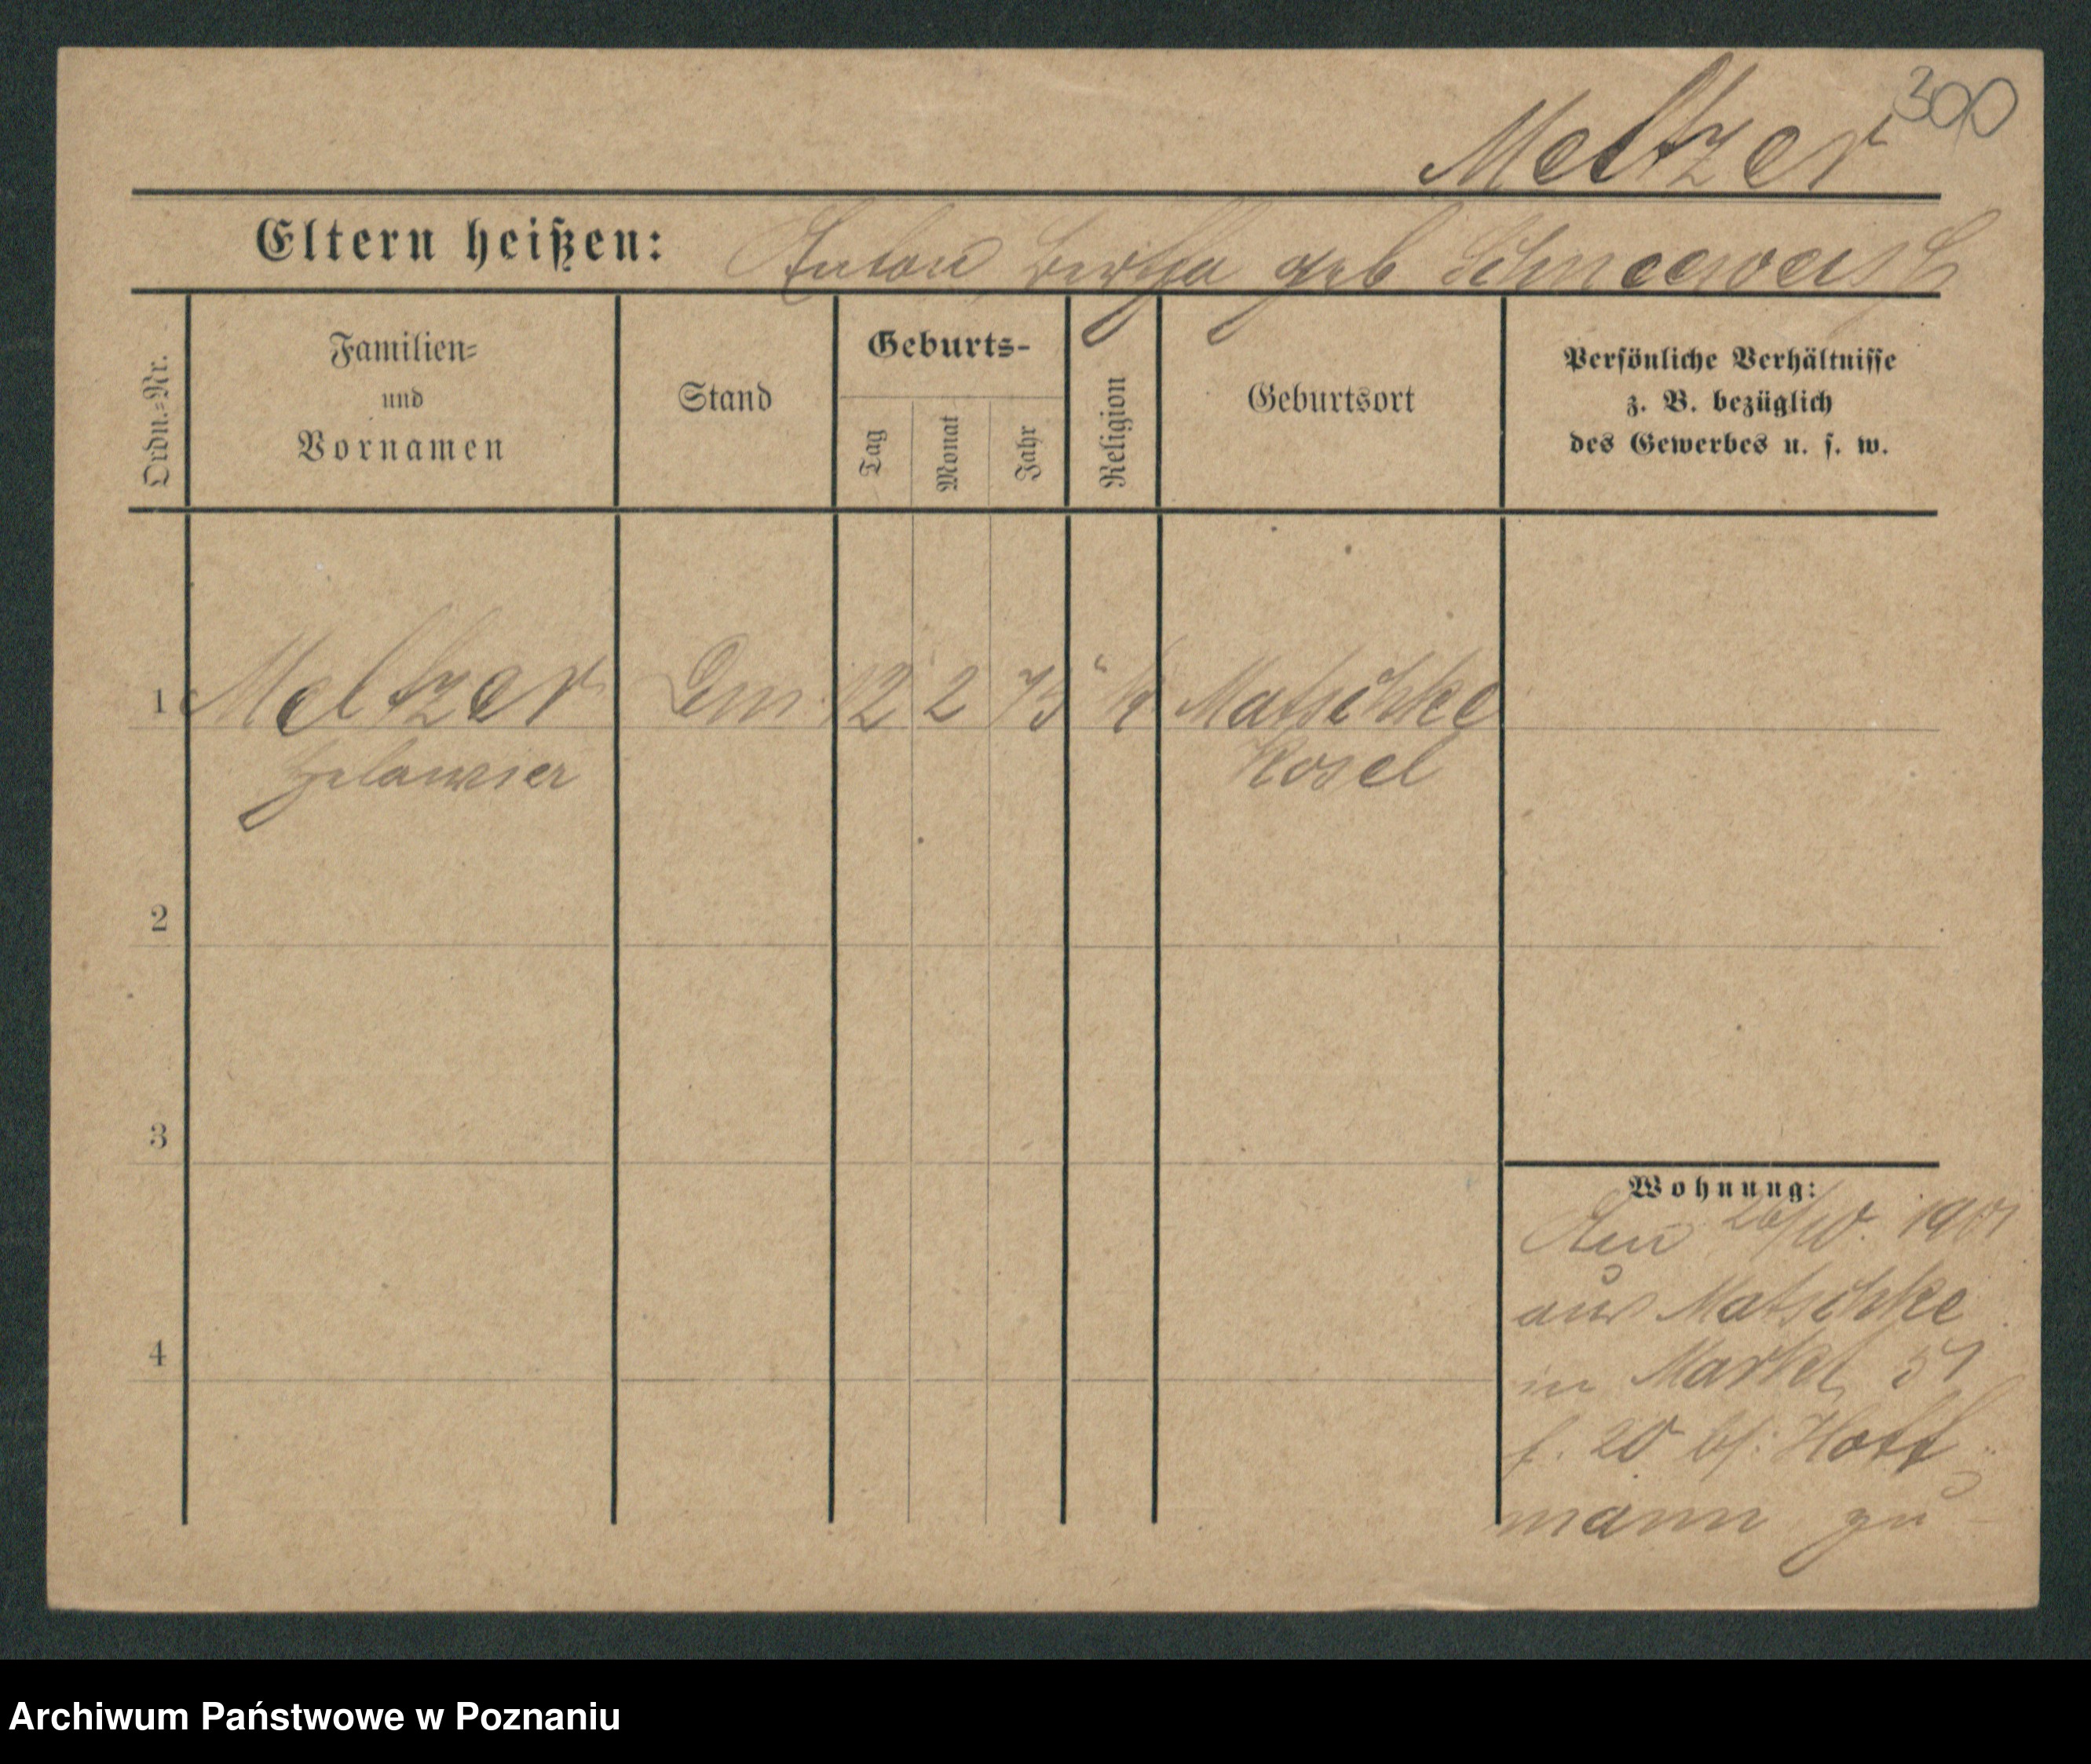 300
Meltzer
Eltern heißen: Anton Bertha geb Schneeweiß
Ordn.=Nr.
Familien=
und
Vornamen
Stand
Geburts-
Tag
Monat
Jahr
Religion
Geburtsort
Persönliche Verhältnisse
z. B. bezüglich
des Gewerbes u. s. w.
1 Meltzer 12 2 75 k Matschke
Kosel
2
3
4
Wohnung:
26/10. 1901
aus Matschke
in Markt 51
20 bs: Hoff
mann zu
Archiwum Państwowe w Poznaniu